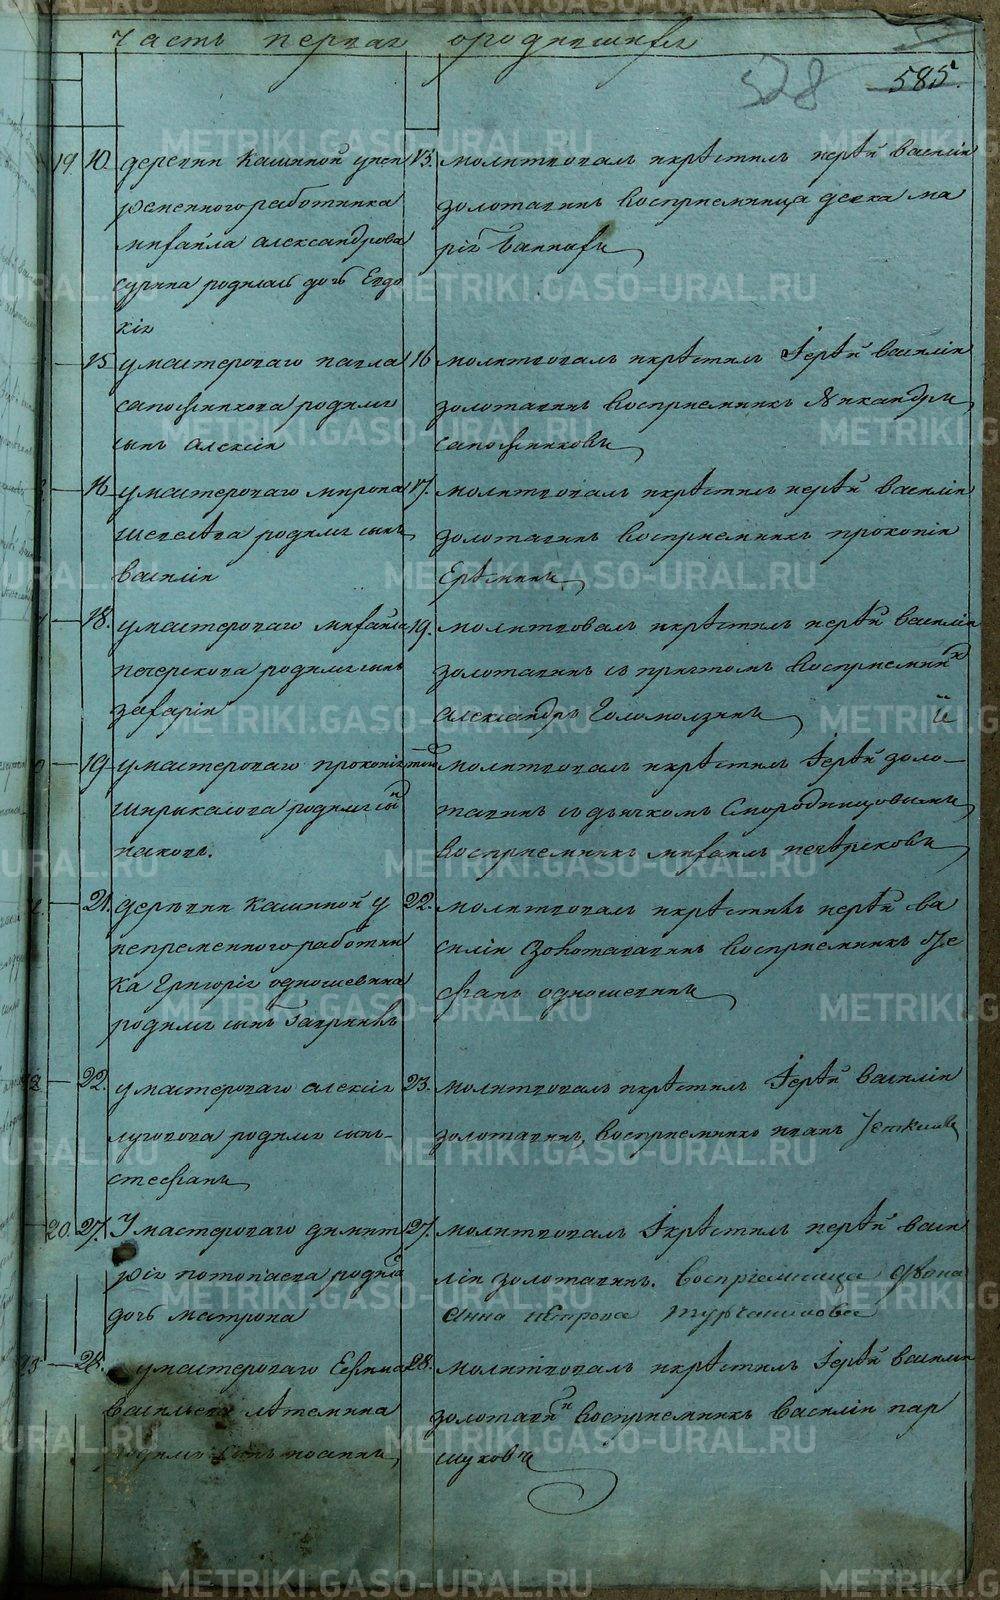 Часть первая о родившихся
528
585.
19 10. деревни Кашиной у непременного работника Михаила Александрова сурина родилась дочь Евдокия
13. молитвовал и крестил иерей Василий золотавин восприемница девка мария
15 у мастероваго павла сапожникова родился сынъ алексий
16 молитвовалъ и крѣстилъ Іерѣй василий золотавинъ восприемникъ Никандръ сапожниковъ
16 у мастероваго мирона шевелѣва родился сынъ василий
17. молитвовалъ и крѣстилъ иерѣй василий золотавинъ восприемникъ прокопий Ерѣминъ
18. у мастероваго михаила печерскова родился сынъ захарий
19. молитвовалъ и крѣстилъ иерѣй василий золотавинъ съ притчомъ восприемникъ александръ Голомолзинъ
19 у мастероваго прокопия ширыкалова родился сынъ иаковъ.
того молитвовалъ и крѣстилъ Іерѣй золотавинъ съ дьячкомъ Смородинцовымъ восприемникъ михаилъ печерсковъ
21. деревни Кашиной у непременного работника Григория одношевина родился сынъ Гавриилъ
22. молитвовалъ и крѣстилъ иерѣй василий восприемникъ Стефанъ одношевинъ
22. у мастероваго алексия лугового родился сынъ стефанъ
23. молитвовалъ и крѣстилъ Іерѣй василий золотавинъ, восприемникъ иванъ
20. 27. У мастероваго димитрия потопаева родилась дочь матрона
27. молитвовалъ и крѣстилъ иерѣй василий золотавинъ. восприемница анна петрова турчанинова
28. у мастероваго Ефима васильева лѣтемина родился сынъ иоаннъ
28. молитвовалъ и крѣстилъ Іерѣй василий золотавинъ восприемникъ василий паршуковъ
METRIKI.GASO-URAL.RU